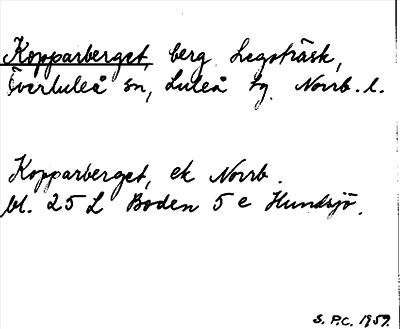 Kopparberget, berg Legsträsk,
Överluleå sn, Luleå tg. Norrb. l.
Kopparberget, ek Norrb.
bl. 25 L Boden 5 e Hundsjö.
S. P.C. 1959.